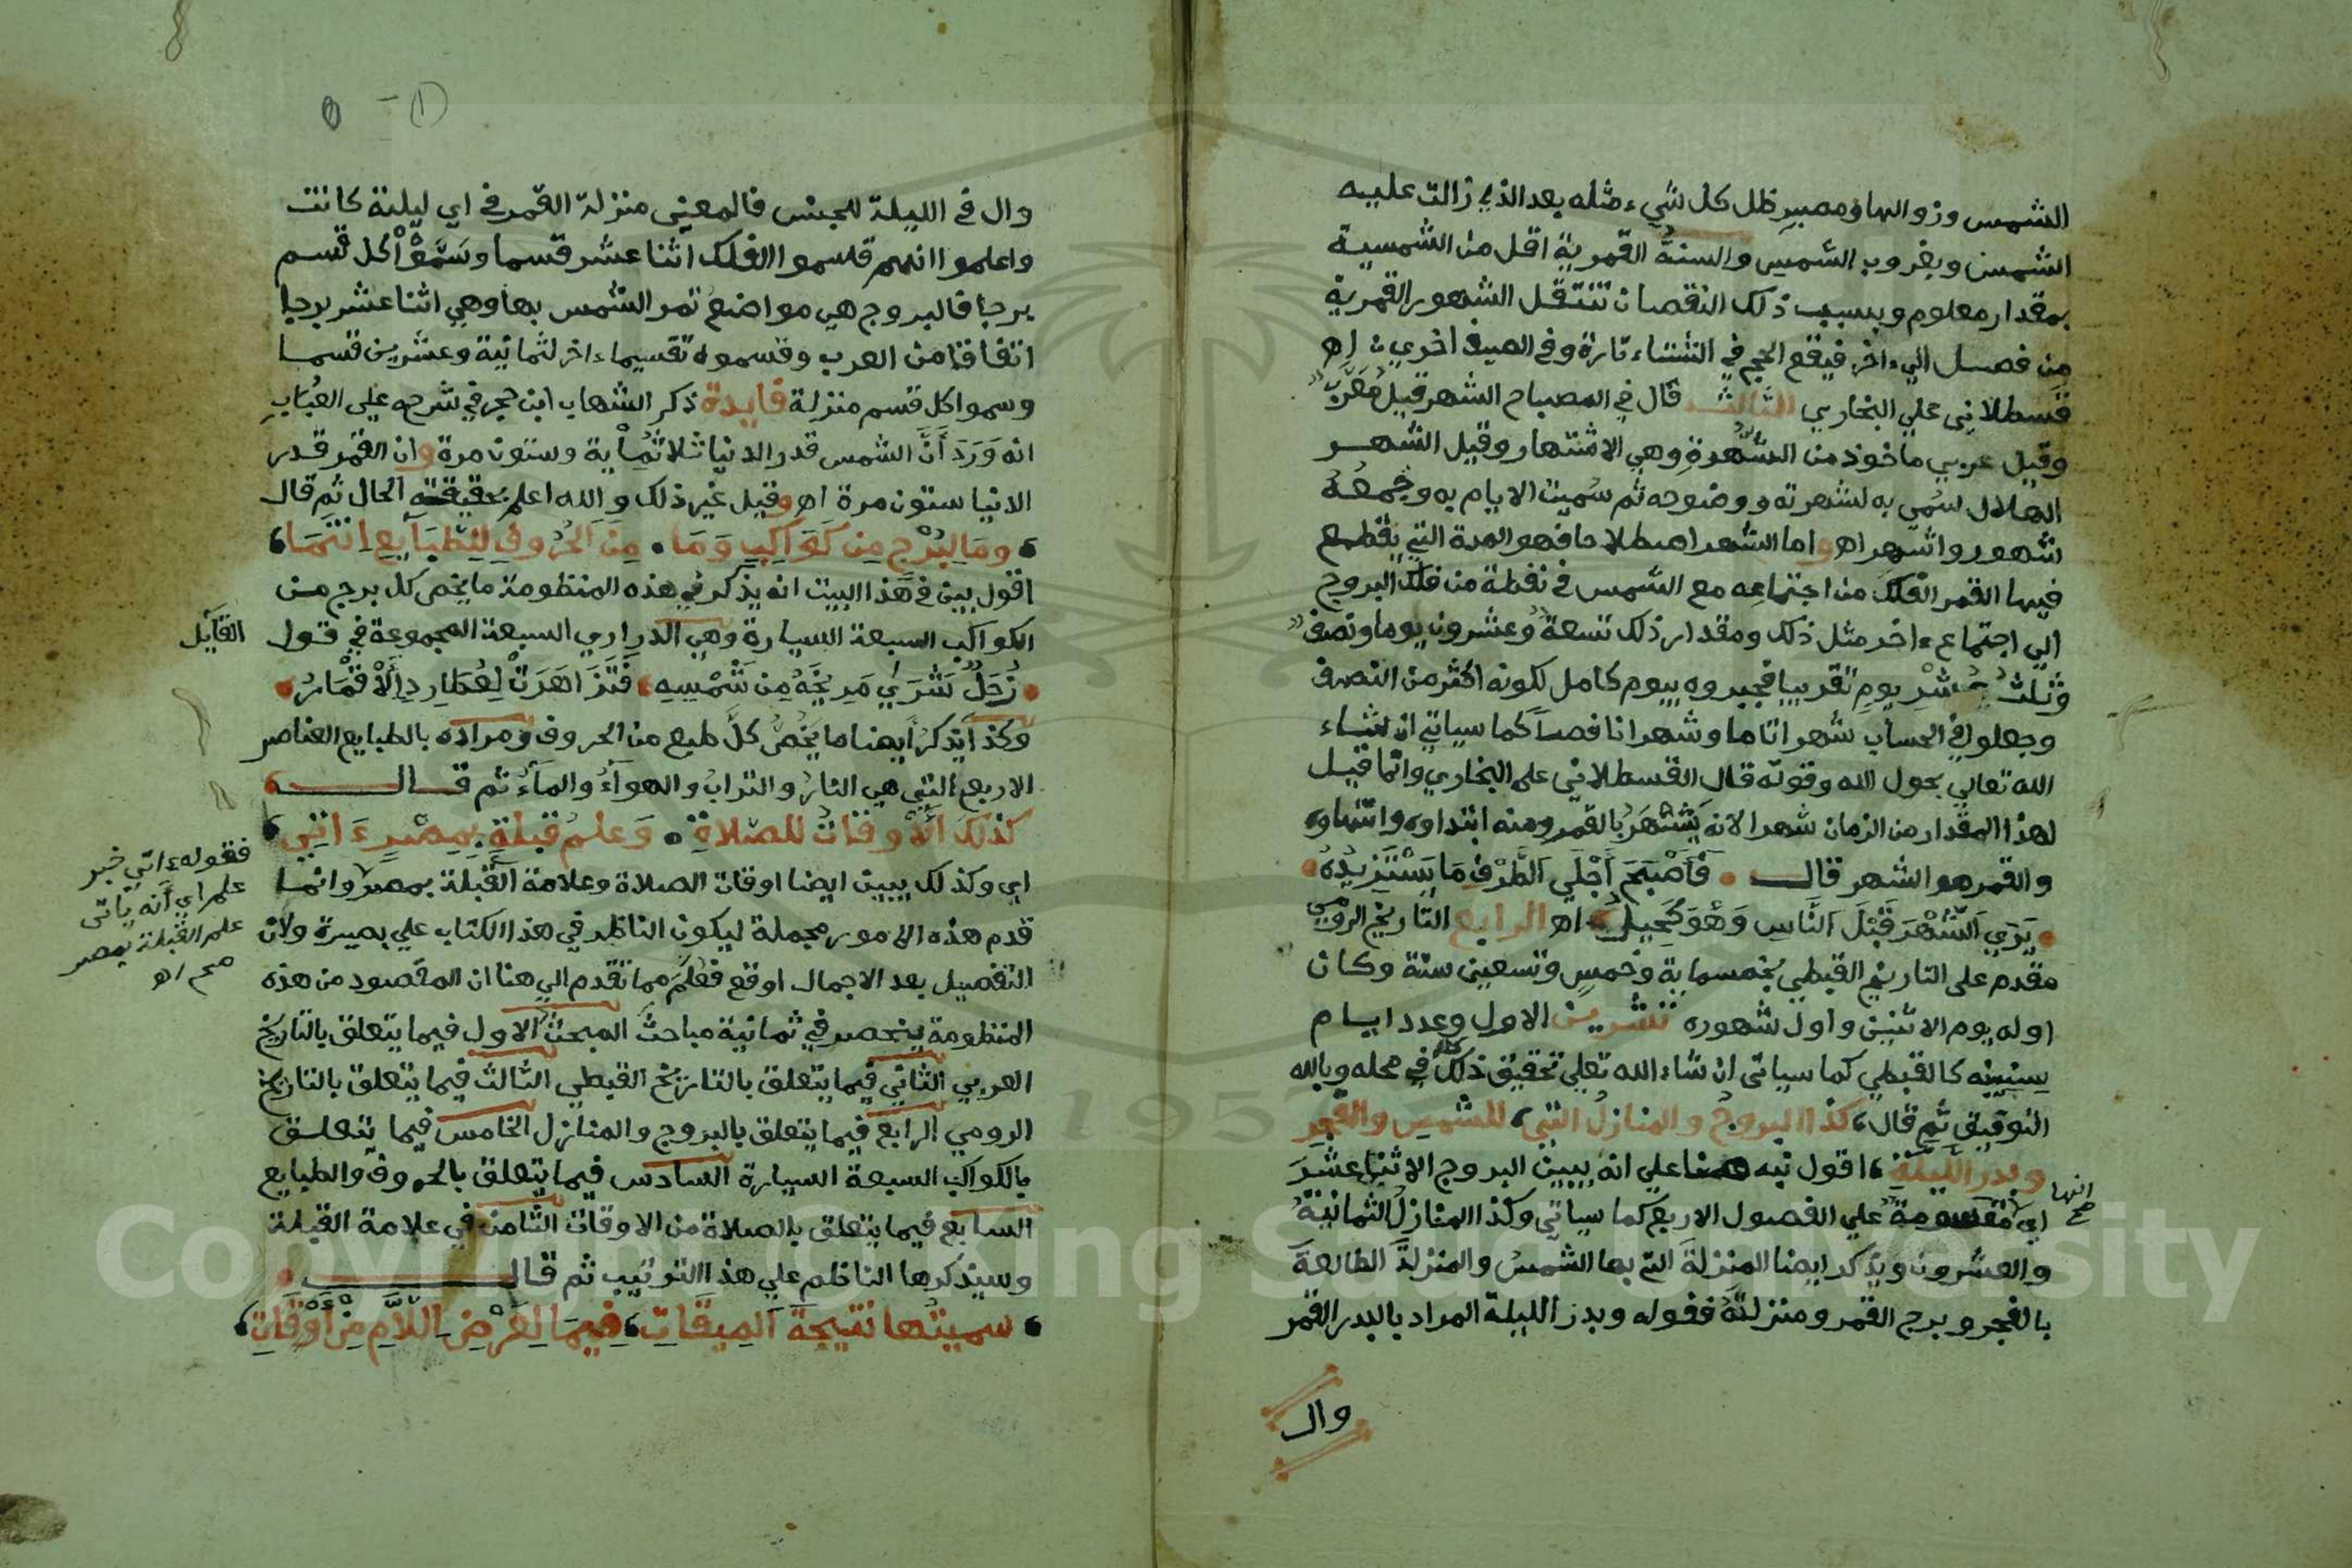 الشمس وزوالها ومصير ظل كل شيء مثله بعد الذي زالت عليه
الشمس وبغروب الشمس والسنة القمرية اقل من الشمسية
بمقدار معلوم وبسبب ذلك النقصان تنتقل الشهور القمرية
من فصل الي اخر فيقع الحج في الشتاء تارة وفي الصيف اخري اه
قسطلاني علي البخاري الثالث قال في المصباح الشهر قيل معرب
وقيل عربي ماخوذ من الشهرة وهي الاشتهار وقيل الشهر
الهلال سمي به لشهرته ووضوحه ثم سميت الايام به وجمعه
شهور واشهر اه واما الشهر اصطلاحا فهو المدة التي يقطع
فيها القمر الفلك من اجتماعه مع الشمس في نقطة من فلك البروج
الي اجتماع اخر مثل ذلك ومقدار ذلك تسعة وعشرون يوما ونصف
وثلث عشر يوم تقريبا فجبروه بيوم كامل لكونه اكثر من النصف
وجعلوا في الحساب شهرا تاما وشهرا ناقصا كما سياتي ان شاء
الله تعالي بحول الله وقوته قال القسطلاني علي البخاري وانما قيل
لهذا المقدار من الزمان شهرا لانه يَشْتَهَرُ بالقمر ومنه ابتداوه وانتهاوه
والقمر هو الشهر قال فَأَصْبَحَ أَجْلَي الطَّرْفِ مَا يَسْتَزِيدُهُ
يَرَي الشَّهْرَ قَبْلَ النَّاسِ وَهْوَ نَحِيلُ اه الرابع التاريخ الرومي
مقدم علي التاريخ القبطي بخمسماية وخمس وتسعين سنة وكان
اوله يوم الاثنين واول شهوره تشرين الاول وعدد ايام
سنينه كالقبطي كما سياتي ان شاء الله تعلي تحقيق ذلك كله في محله وبالله
التوفيق ثم قال كذا البروج والمنازل التي للشمس والفجر
وبدر الليلة اقول نبه هنا علي انه يبين البروج الاثنا عشر
انها صح
اي مقسومة علي الفصول الاربع كما سياتي وكذا المنازل الثمانية
والعشرون ويذكر ايضا المنزلة التي بها الشمس والمنزلة الطالعة
بالفجر وبرج القمر ومنزلته فقوله وبدر الليلة المراد بالبدر القمر
وال
وال في الليلة للجنس فالمعني منزلة القمر في اي ليلة كانت
واعلموا انهم قسموا الفلك اثنا عشر قسما وسَمَّوْا كل قسم
برجا فالبروج هي مواضع تمر الشمس بها وهي اثنا عشر برجا
اتفاقا من العرب وقسموه تقسيما اخر لثمانية وعشرين قسما
وسموا كل قسم منزلة فايدة ذكر الشهاب ابن حجر في شرحه علي العباب
انه وَرَدَ أَنَّ الشمس قدر الدنيا ثلاثماية وستون مرة وان القمر قدر
الدنيا ستون مرة اه وقيل غير ذلك والله اعلم بحقيقة الحال ثم قال
وما لِبُرْجٍ مِن كَوَاكِبٍ وَمَا مِنَ الحُرُوفِ لِلطَّبَايِعِ انْتَمَا
اقول بين في هذا البيت انه يذكر في هذه المنظومة ما يخص كل برج من
الكواكب السبعة السيارة وهي الدراري السبعة المجموعة في قول
القايل
زُحَلٌ شَرَي مَرِيخَهُ مِن شَمْسِهِ فَتَزَاهَرَتْ لِعُطَارِدِ الْأَقْمَارُ
وكذا يذكر ايضا ما يَخُصُّ كلَّ طبع من الحروف ومراده بالطبايع العناصر
الاربع التي هي النارُ والترابُ والهواءُ والماءُ ثم قال
كذلكَ الْأَوقَاتُ للصلاةِ وَعلمُ قبلةٍ بِمِصْرٍ ءَاتِي
اي وكذلك يبين ايضا اوقات الصلاة وعلامة القبلة بمصر وانما
فقوله ءاتي خبر
علم اي أنه ياتي
علم القبلة بمصر
صح اه
قدم هذه الامور مجملة ليكون الناظر في هذا الكتاب علي بصيرة ولان
التفصيل بعد الاجمال اوقع فعُلِمَ مما تقدم الي هنا ان المقصود من هذه
المنظومة ينحصر في ثمانية مباحث المبحث الاول فيما يتعلق بالتاريخ
العربي الثاني فيما يتعلق بالتاريخ القبطي الثالث فيما يتعلق بالتاريخ
الرومي الرابع فيما يتعلق بالبروج والمنازل الخامس فيما يتعلق
بالكواكب السبعة السيارة السادس فيما يتعلق بالحروف والطبايع
السابع فيما يتعلق بالصلاة من الاوقات الثامن في علامة القبلة
وسيذكرها الناظم علي هذا الترتيب ثم قال
سميتها نتيجة الميقات فيما لِفَرْضِ اللَّهِ مِنْ أَوْقَاتِ
Copyright © King Saud University
1957